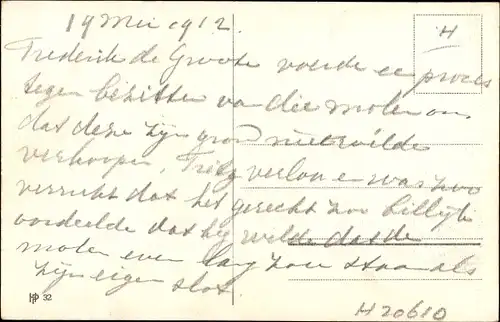 19 Mei 1912.
H
Frederik de Groote voerde een proces
tegen bezitter van die molen om
dat deze zijn grond niet wilde
verkoopen, Frits verloor en was zoo
verrukt dat het gerecht zoo billijk
oordeelde dat hij wilde dat de
molen even lang zou staan als
zijn eigen slot
HP 32
H20610